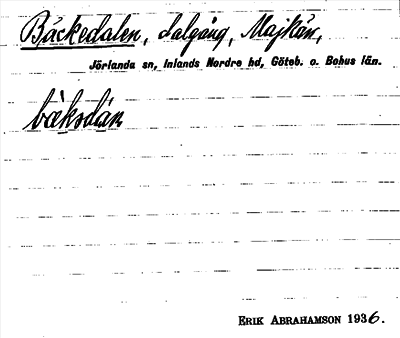 Bäckedalen, dalgång, Majkärr,
Jörlanda sn, Inlands Nordre hd, Göteb. o. Bohus län.
bæksdán
ERIK ABRAHAMSON 1936.